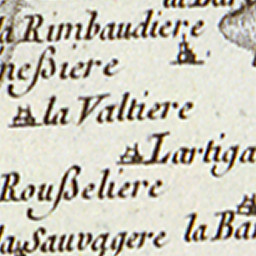 la Rimbaudiere
neßiere
la Valtiere
Lartiga
Roußeliere
la Sauvagere la Bar